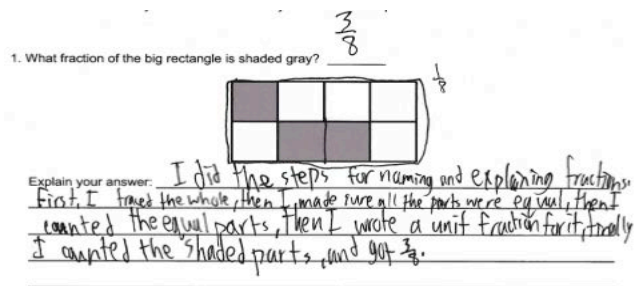 3/8
1. What fraction of the big rectangle is shaded gray?
1/8
Explain your answer: I did the steps for naming and explaining fractions.
First, I traced the whole, then I made sure all the parts were equal, then I
counted the equal parts, then I wrote a unit fraction for it, finally
I counted the shaded parts, and got 3/8.